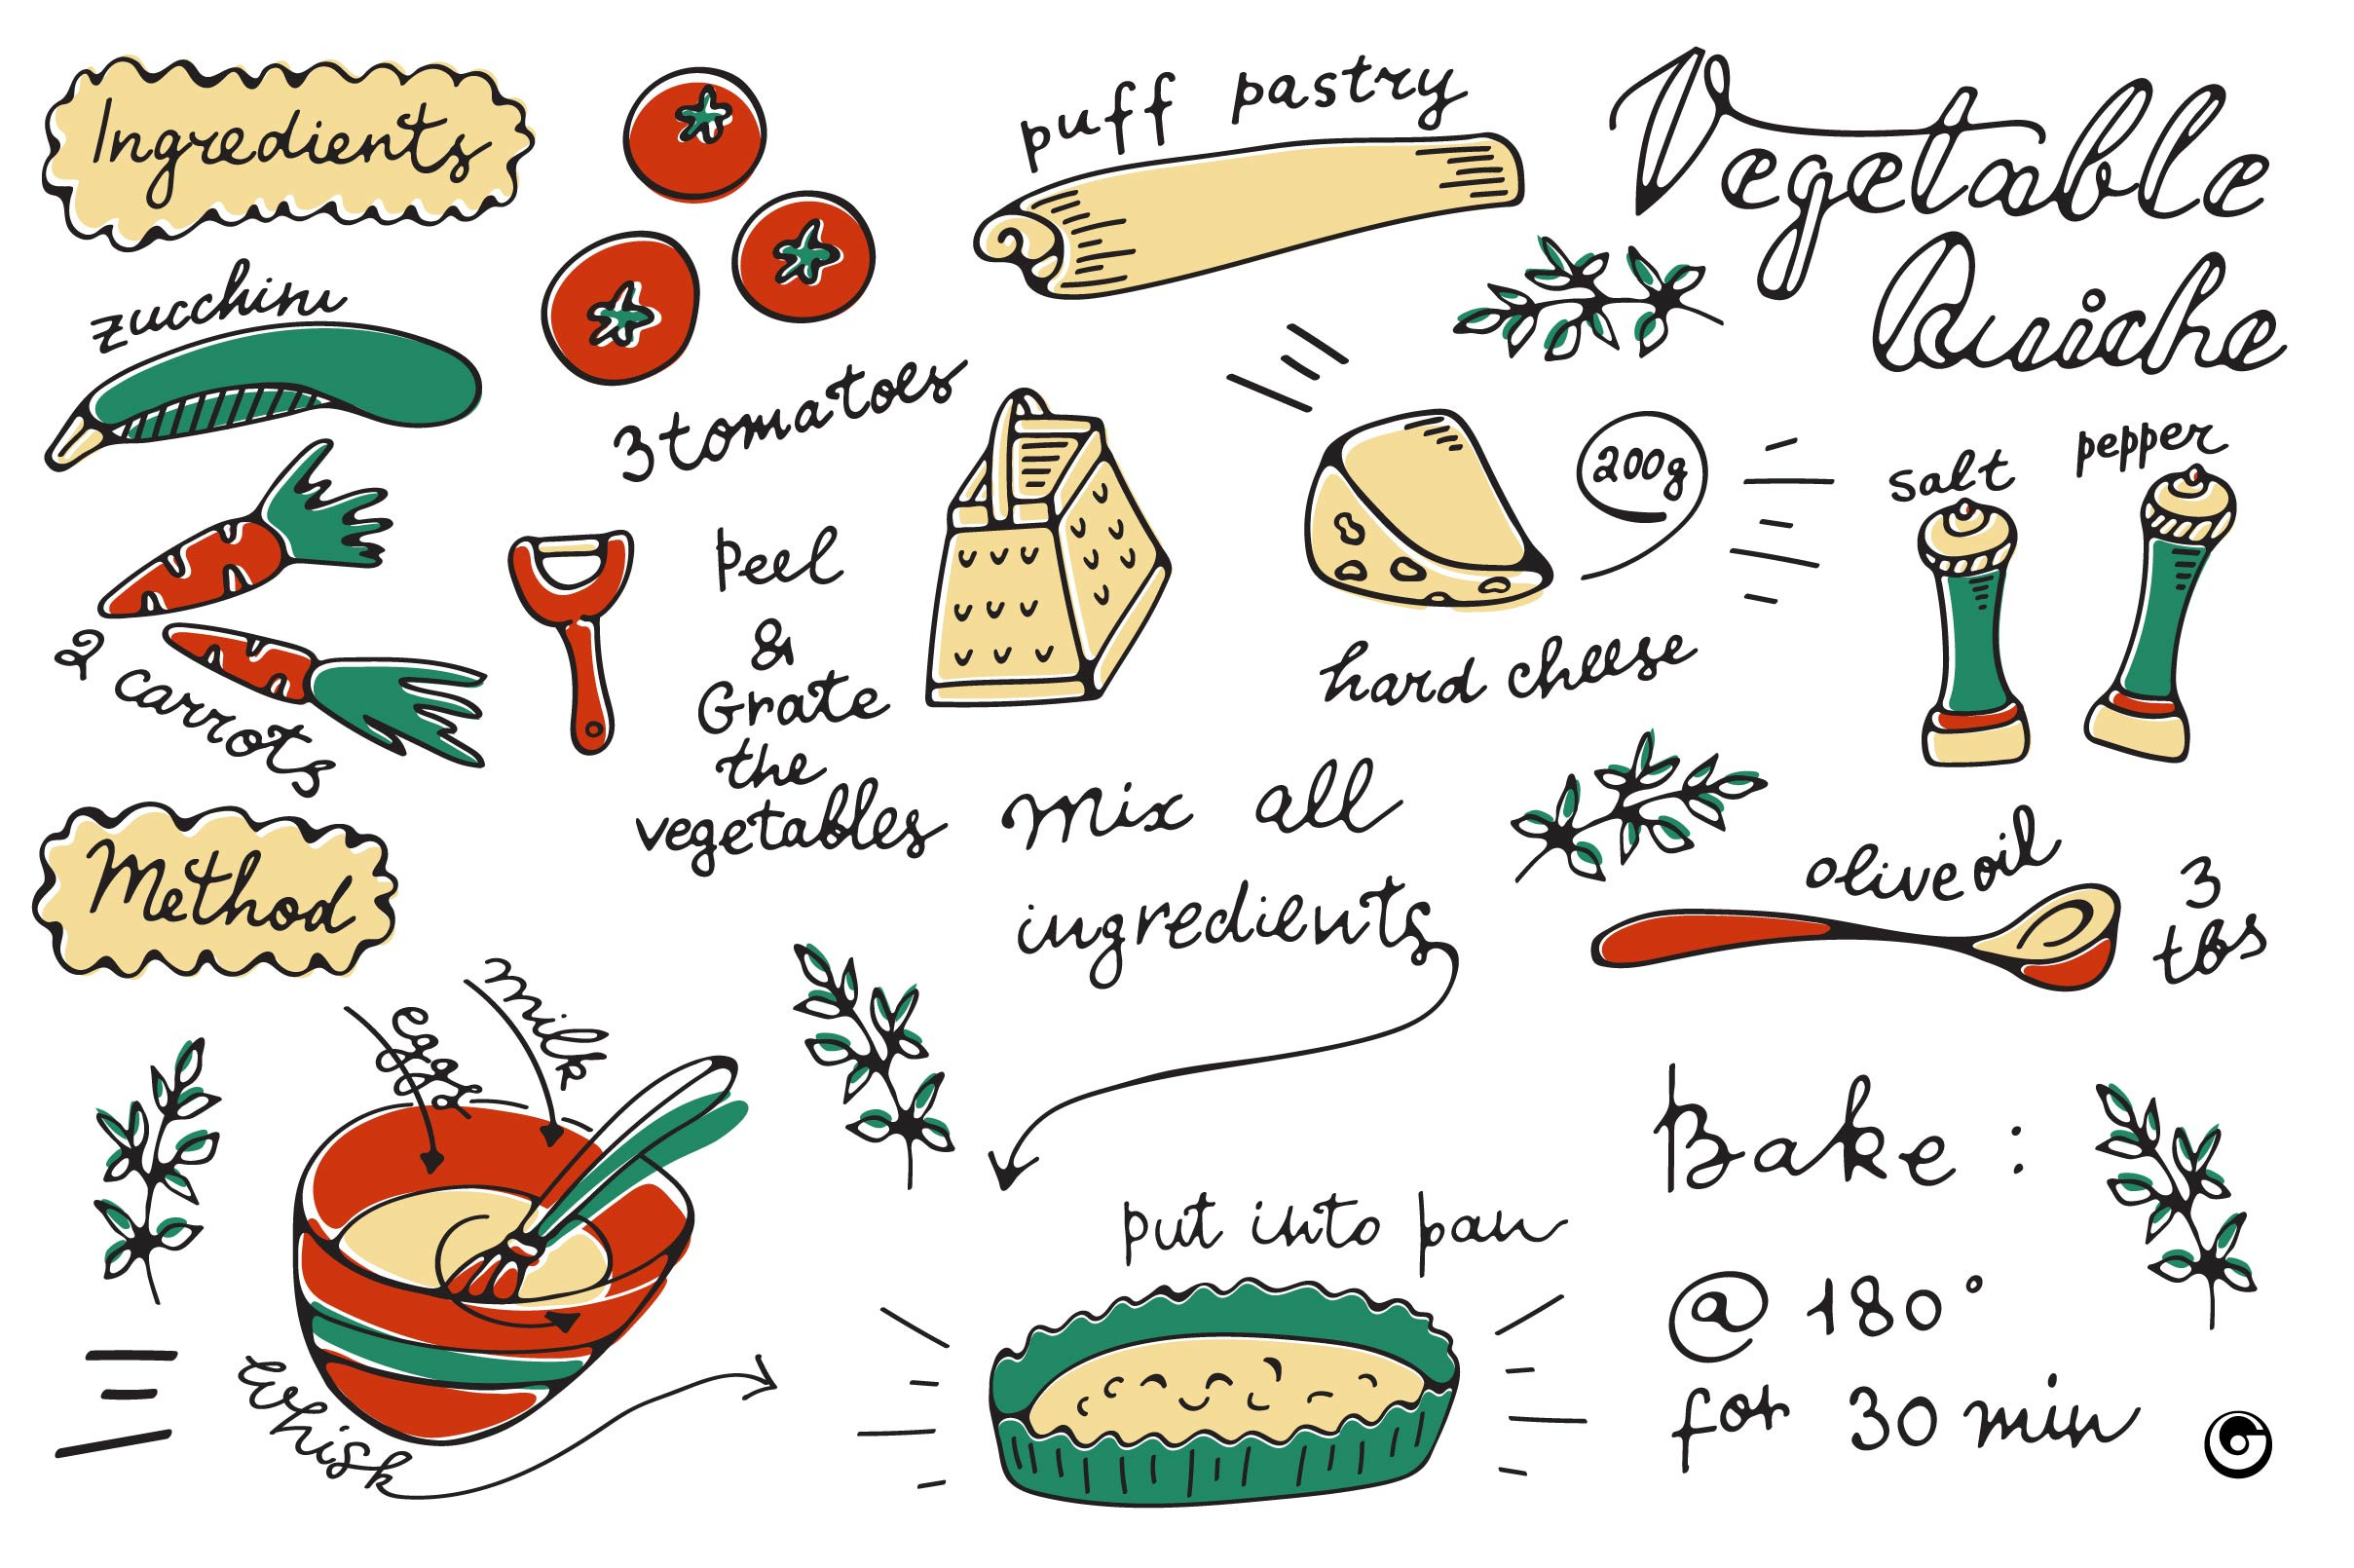 Vegetable
Quiche
Ingredients
zucchini
3 tomatoes
puff pastry
2 carrots
peel
&
Grate
the
vegetables
200g
hard cheese
salt
pepper
olive oil
3
tbs
Method
eggs
milk
whisk
mix all
ingredients
put into pan
Bake :
@ 180°
for 30 min